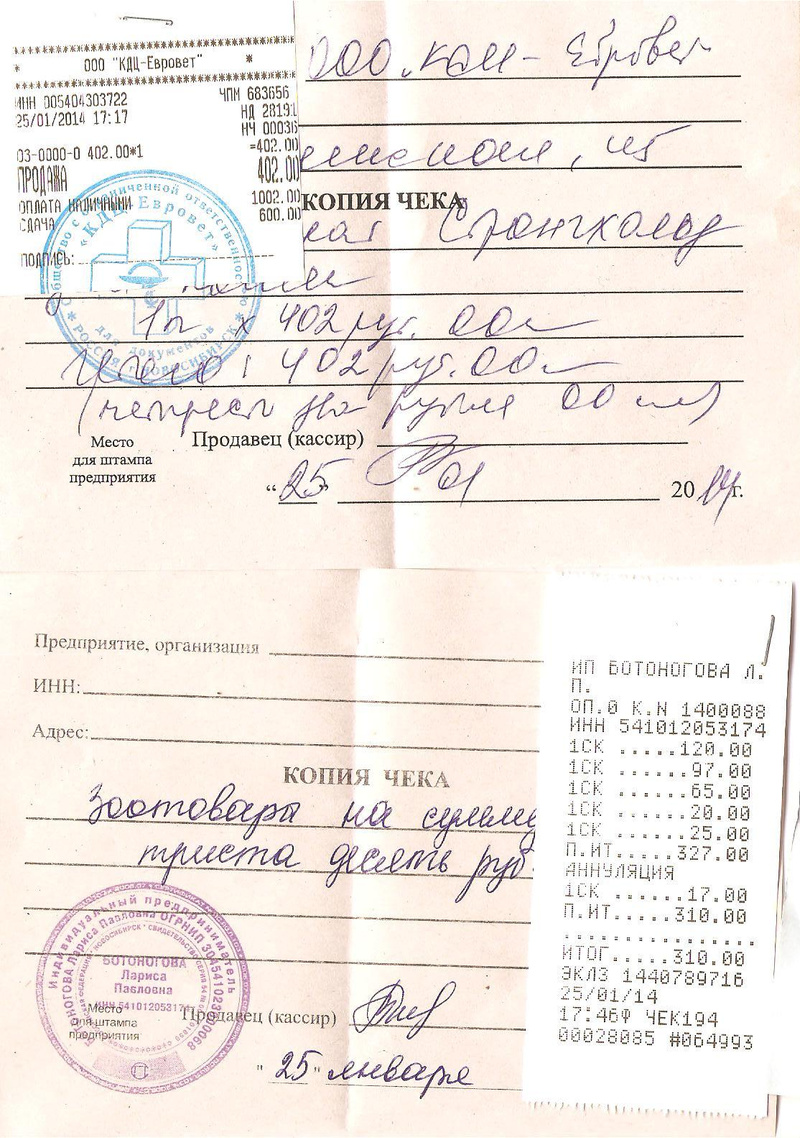 ООО "КДЦ-Евровет" *
ИНН 005404303722 ЧПМ 683656
25/01/2014 17:17 НД 28191
НЧ 00036
03-0000-0 402.00*1 =402.00
ПРОДАЖА 402.00
ОПЛАТА НАЛИЧНЫМИ 1002.00
СДАЧА 600.00
ПОДПИСЬ:
Общество с ограниченной ответственностью
«КДЦ-Евровет»
для документов
* РОССИЯ * НОВОСИБИРСК *
ООО "КДЦ - Евровет
КОПИЯ ЧЕКА
Стронгхолд
1п х 402 руб. 00
Итого: 402 руб. 00
(четыреста два рубля 00
Место
для штампа
предприятия
Продавец (кассир)
"25" 01 2014г.
Предприятие, организация
ИНН:
Адрес:
КОПИЯ ЧЕКА
Зоотовары на сумму
триста десять руб.
Индивидуальный предприниматель
БОТОНОГОВА Лариса Павловна ОГРНИП
БОТОНОГОВА
Лариса
Павловна
ИНН 541012053174
Место
для штампа
предприятия
Продавец (кассир)
"25" января
ИП БОТОНОГОВА Л.
П.
ОП.0 К.N 1400088
ИНН 541012053174
1СК .....120.00
1СК ......97.00
1СК ......65.00
1СК ......20.00
1СК ......25.00
П.ИТ.....327.00
АННУЛЯЦИЯ
1СК ......17.00
П.ИТ.....310.00
................
ИТОГ.....310.00
ЭКЛЗ 1440789716
25/01/14
17:46Ф ЧЕК194
00028085 #064993